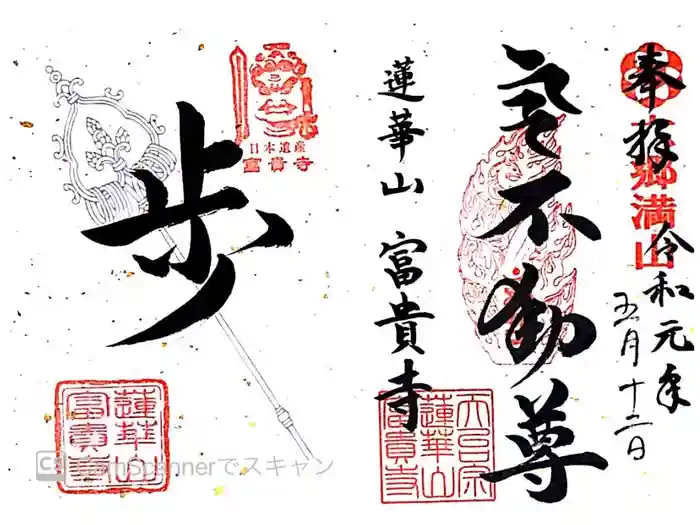 奉拝
六郷満山
令和元年
五月十二日
不動尊
蓮華山 富貴寺
天台宗
蓮華山
富貴寺
日本遺産
富貴寺
歩
蓮華山
富貴寺
CS CamScannerでスキャン